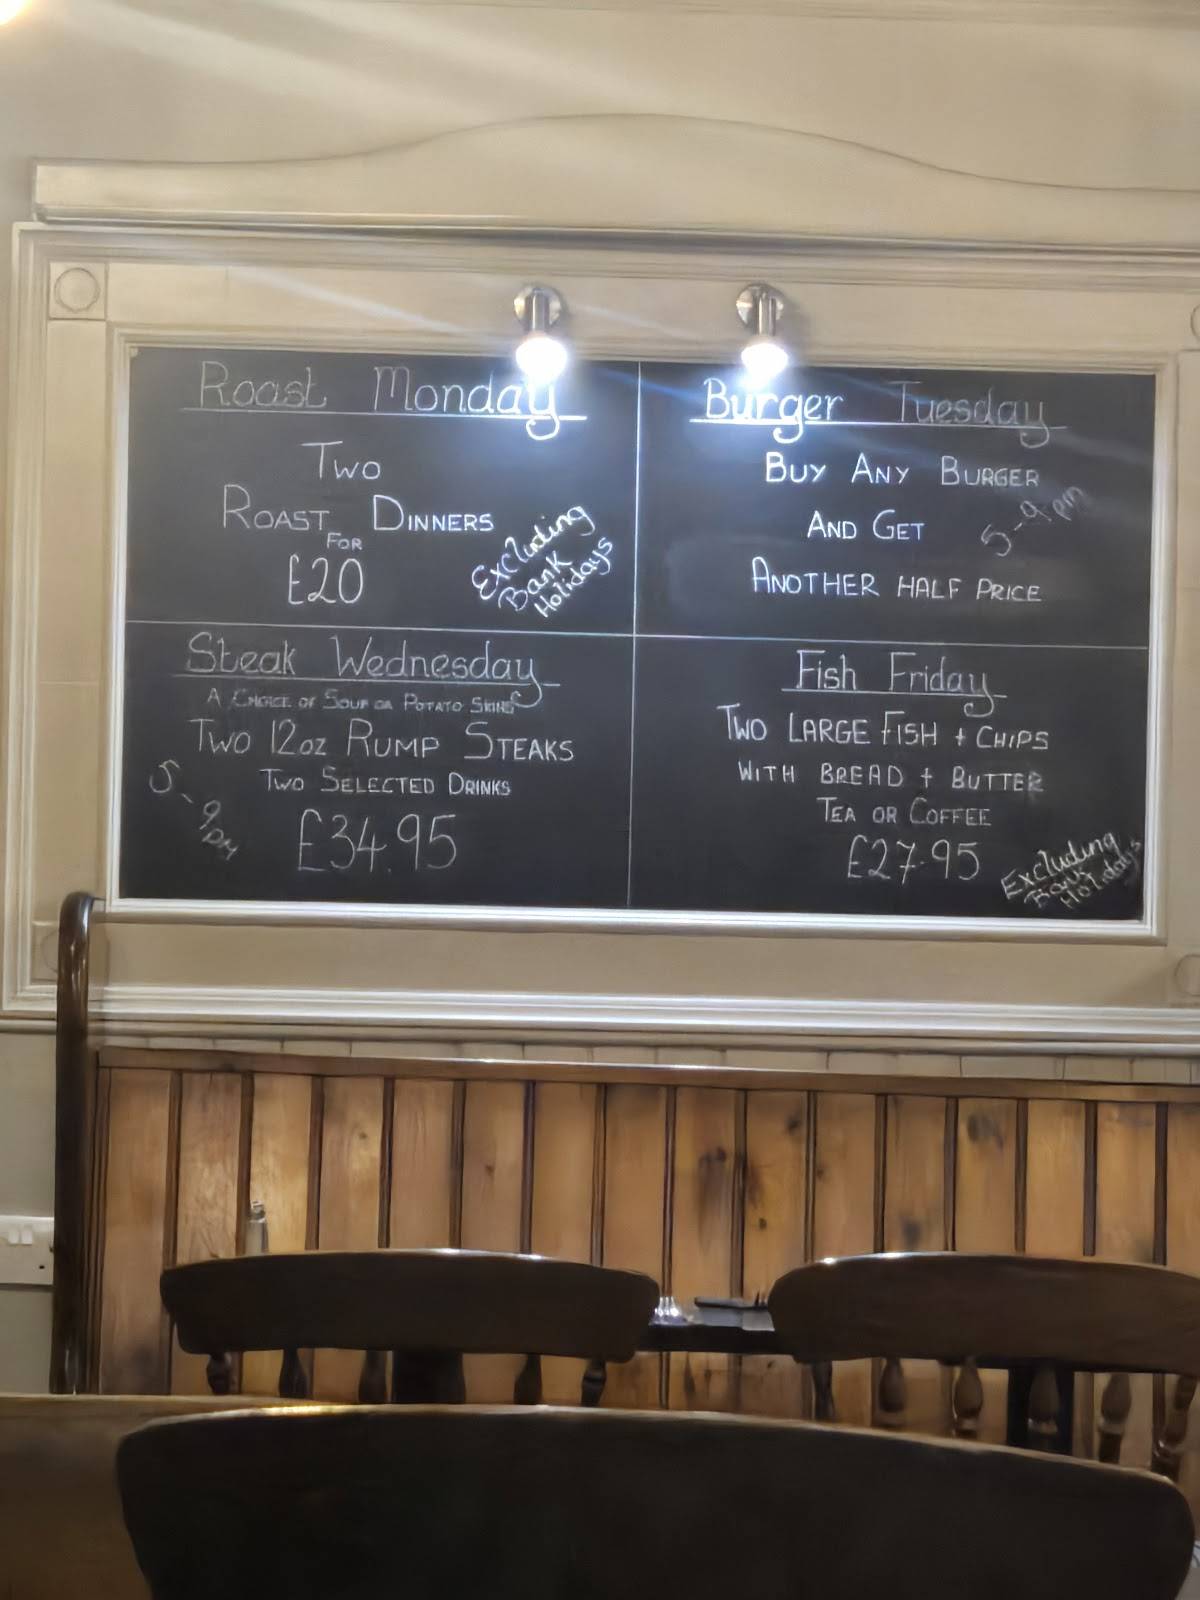 Roast Monday
Two
Roast Dinners
For
£20
Excluding
Bank
Holidays
Burger Tuesday
Buy Any Burger
And Get
Another half price
5-9pm
Steak Wednesday
A Choice of Soup or Potato Skins
Two 12oz Rump Steaks
Two Selected Drinks
£34.95
5-9pm
Fish Friday
Two Large Fish + Chips
With Bread + Butter
Tea or Coffee
£27.95
Excluding
Bank
Holidays